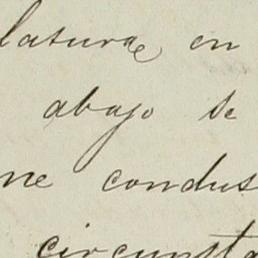 latura en
abajo se
ne condus
circunsta